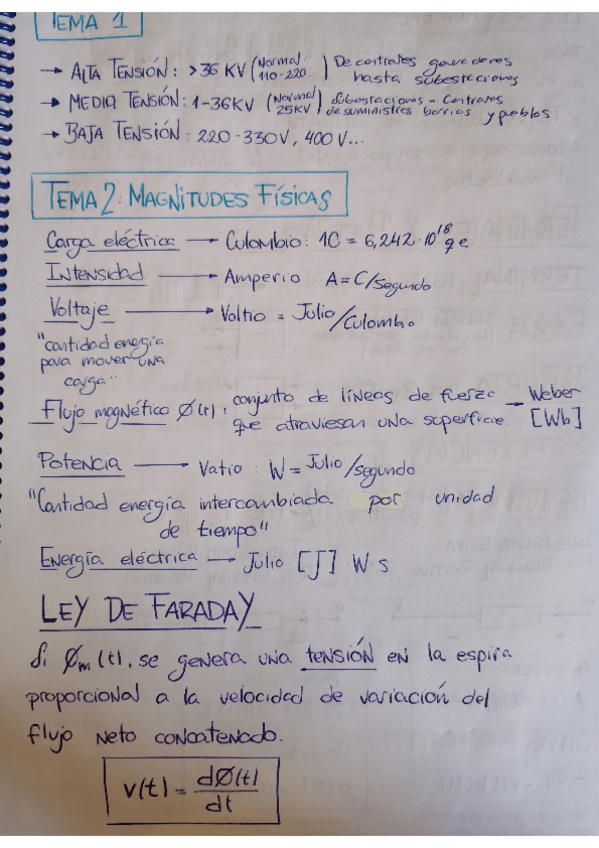 TEMA 1
→ ALTA TENSIÓN: >36 KV (Normal 110-220...) De centrales generadores hasta subestaciones
→ MEDIA TENSIÓN: 1-36KV (Normal 25KV) Subestaciones - Centrales de suministros barrios y pueblos
→ BAJA TENSIÓN: 220-330V, 400V...
TEMA 2: MAGNITUDES FÍSICAS
Carga eléctrica → Culombio: 1C = 6,242·10^18 qe
Intensidad → Amperio A = C/segundo
Voltaje → Voltio = Julio/Culombio
"cantidad energía
para mover una
carga"
Flujo magnético Ø(t): conjunto de líneas de fuerza que atraviesan una superficie — Weber [Wb]
Potencia → Vatio: W = Julio/segundo
"Cantidad energía intercambiada por unidad
de tiempo"
Energía eléctrica → Julio [J] W·s
LEY DE FARADAY
Si Øm(t), se genera una tensión en la espira
proporcional a la velocidad de variación del
flujo neto concatenado.
v(t) = dØ(t)/dt